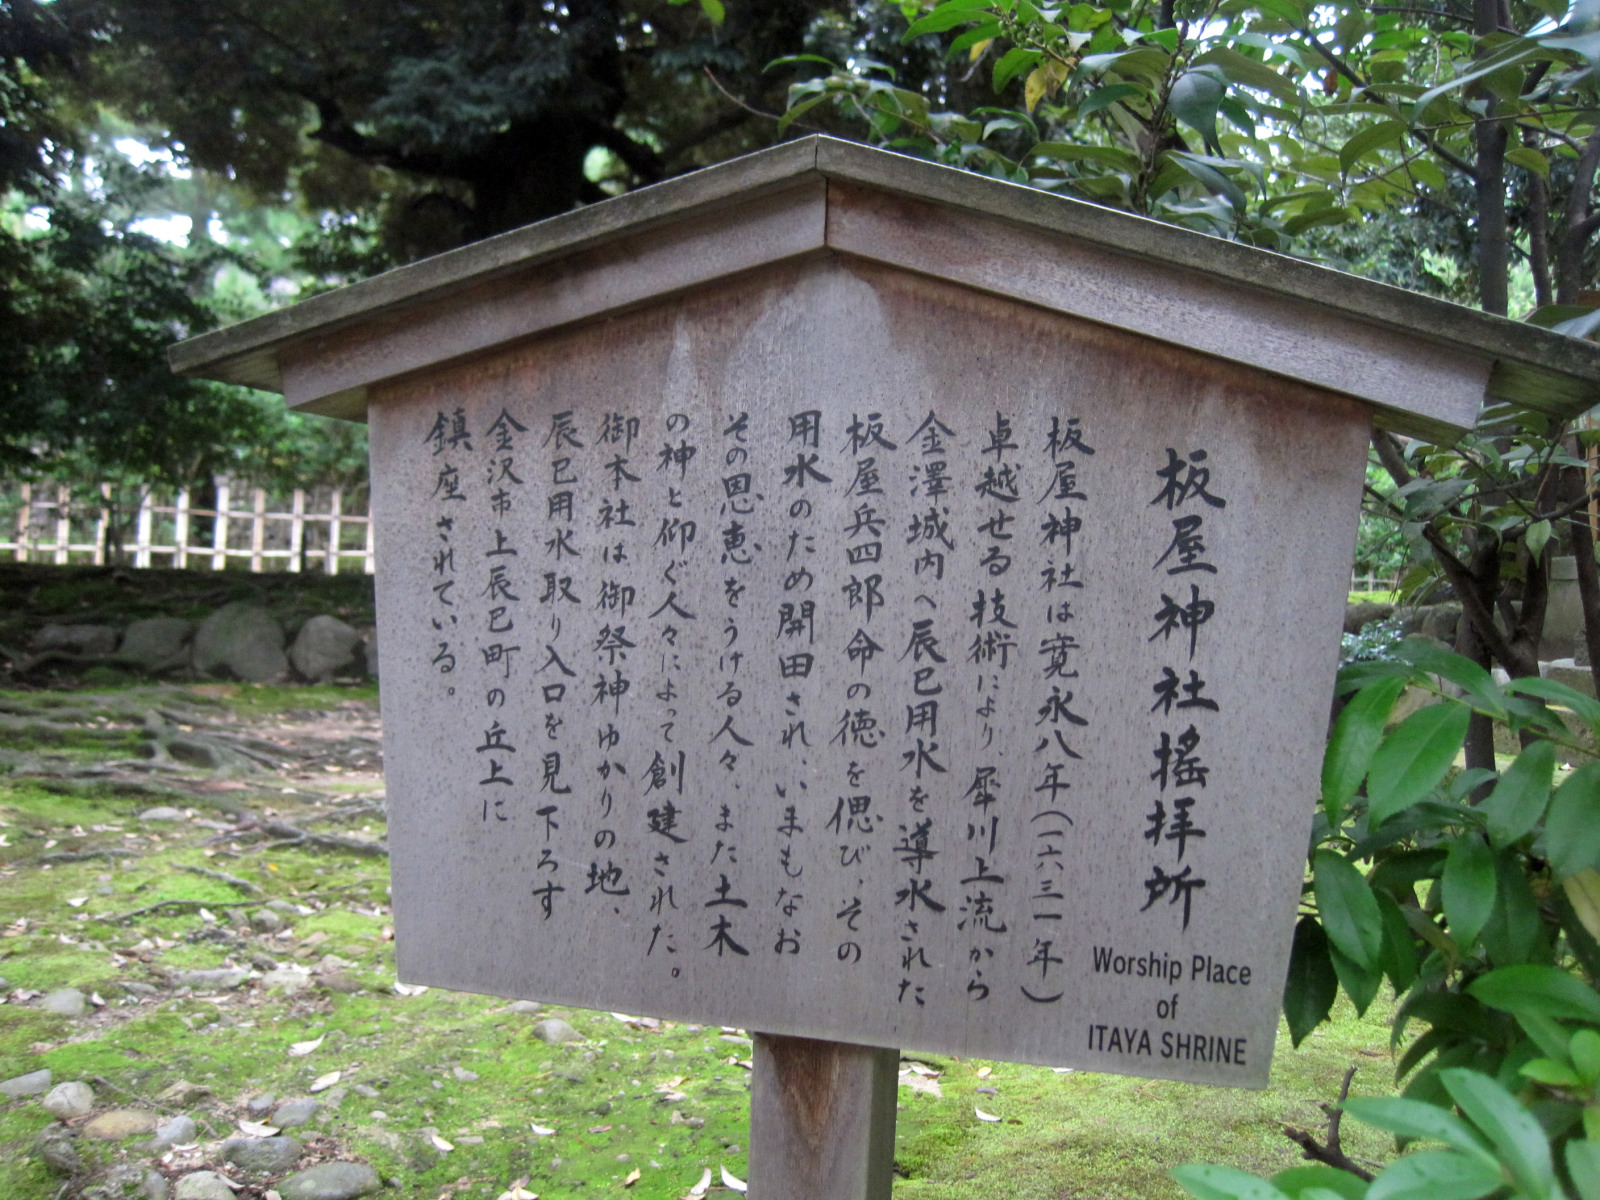 板屋神社揺拝所
Worship Place
of
ITAYA SHRINE
板屋神社は寛永八年(一六三一年)
卓越せる技術により、犀川上流から
金澤城内へ辰巳用水を導水された
板屋兵四郎命の徳を偲び、その
用水のため開田され、いまもなお
その恩恵をうける人々、また土木
の神と仰ぐ人々によって創建された。
御本社は御祭神ゆかりの地、
辰巳用水取り入口を見下ろす
金沢市上辰巳町の丘上に
鎮座されている。